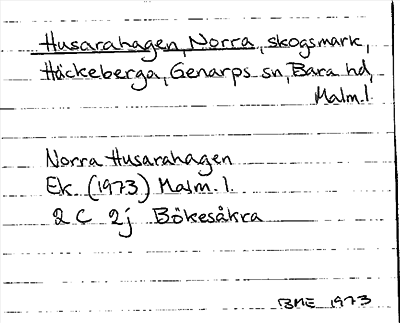 Husarahagen, Norra, skogsmark,
Häckeberga, Genarps sn, Bara hd,
Malm.l.
Norra Husarahagen
Ek. (1973) Malm. l.
2 C 2j Bökesåkra
BME 1973